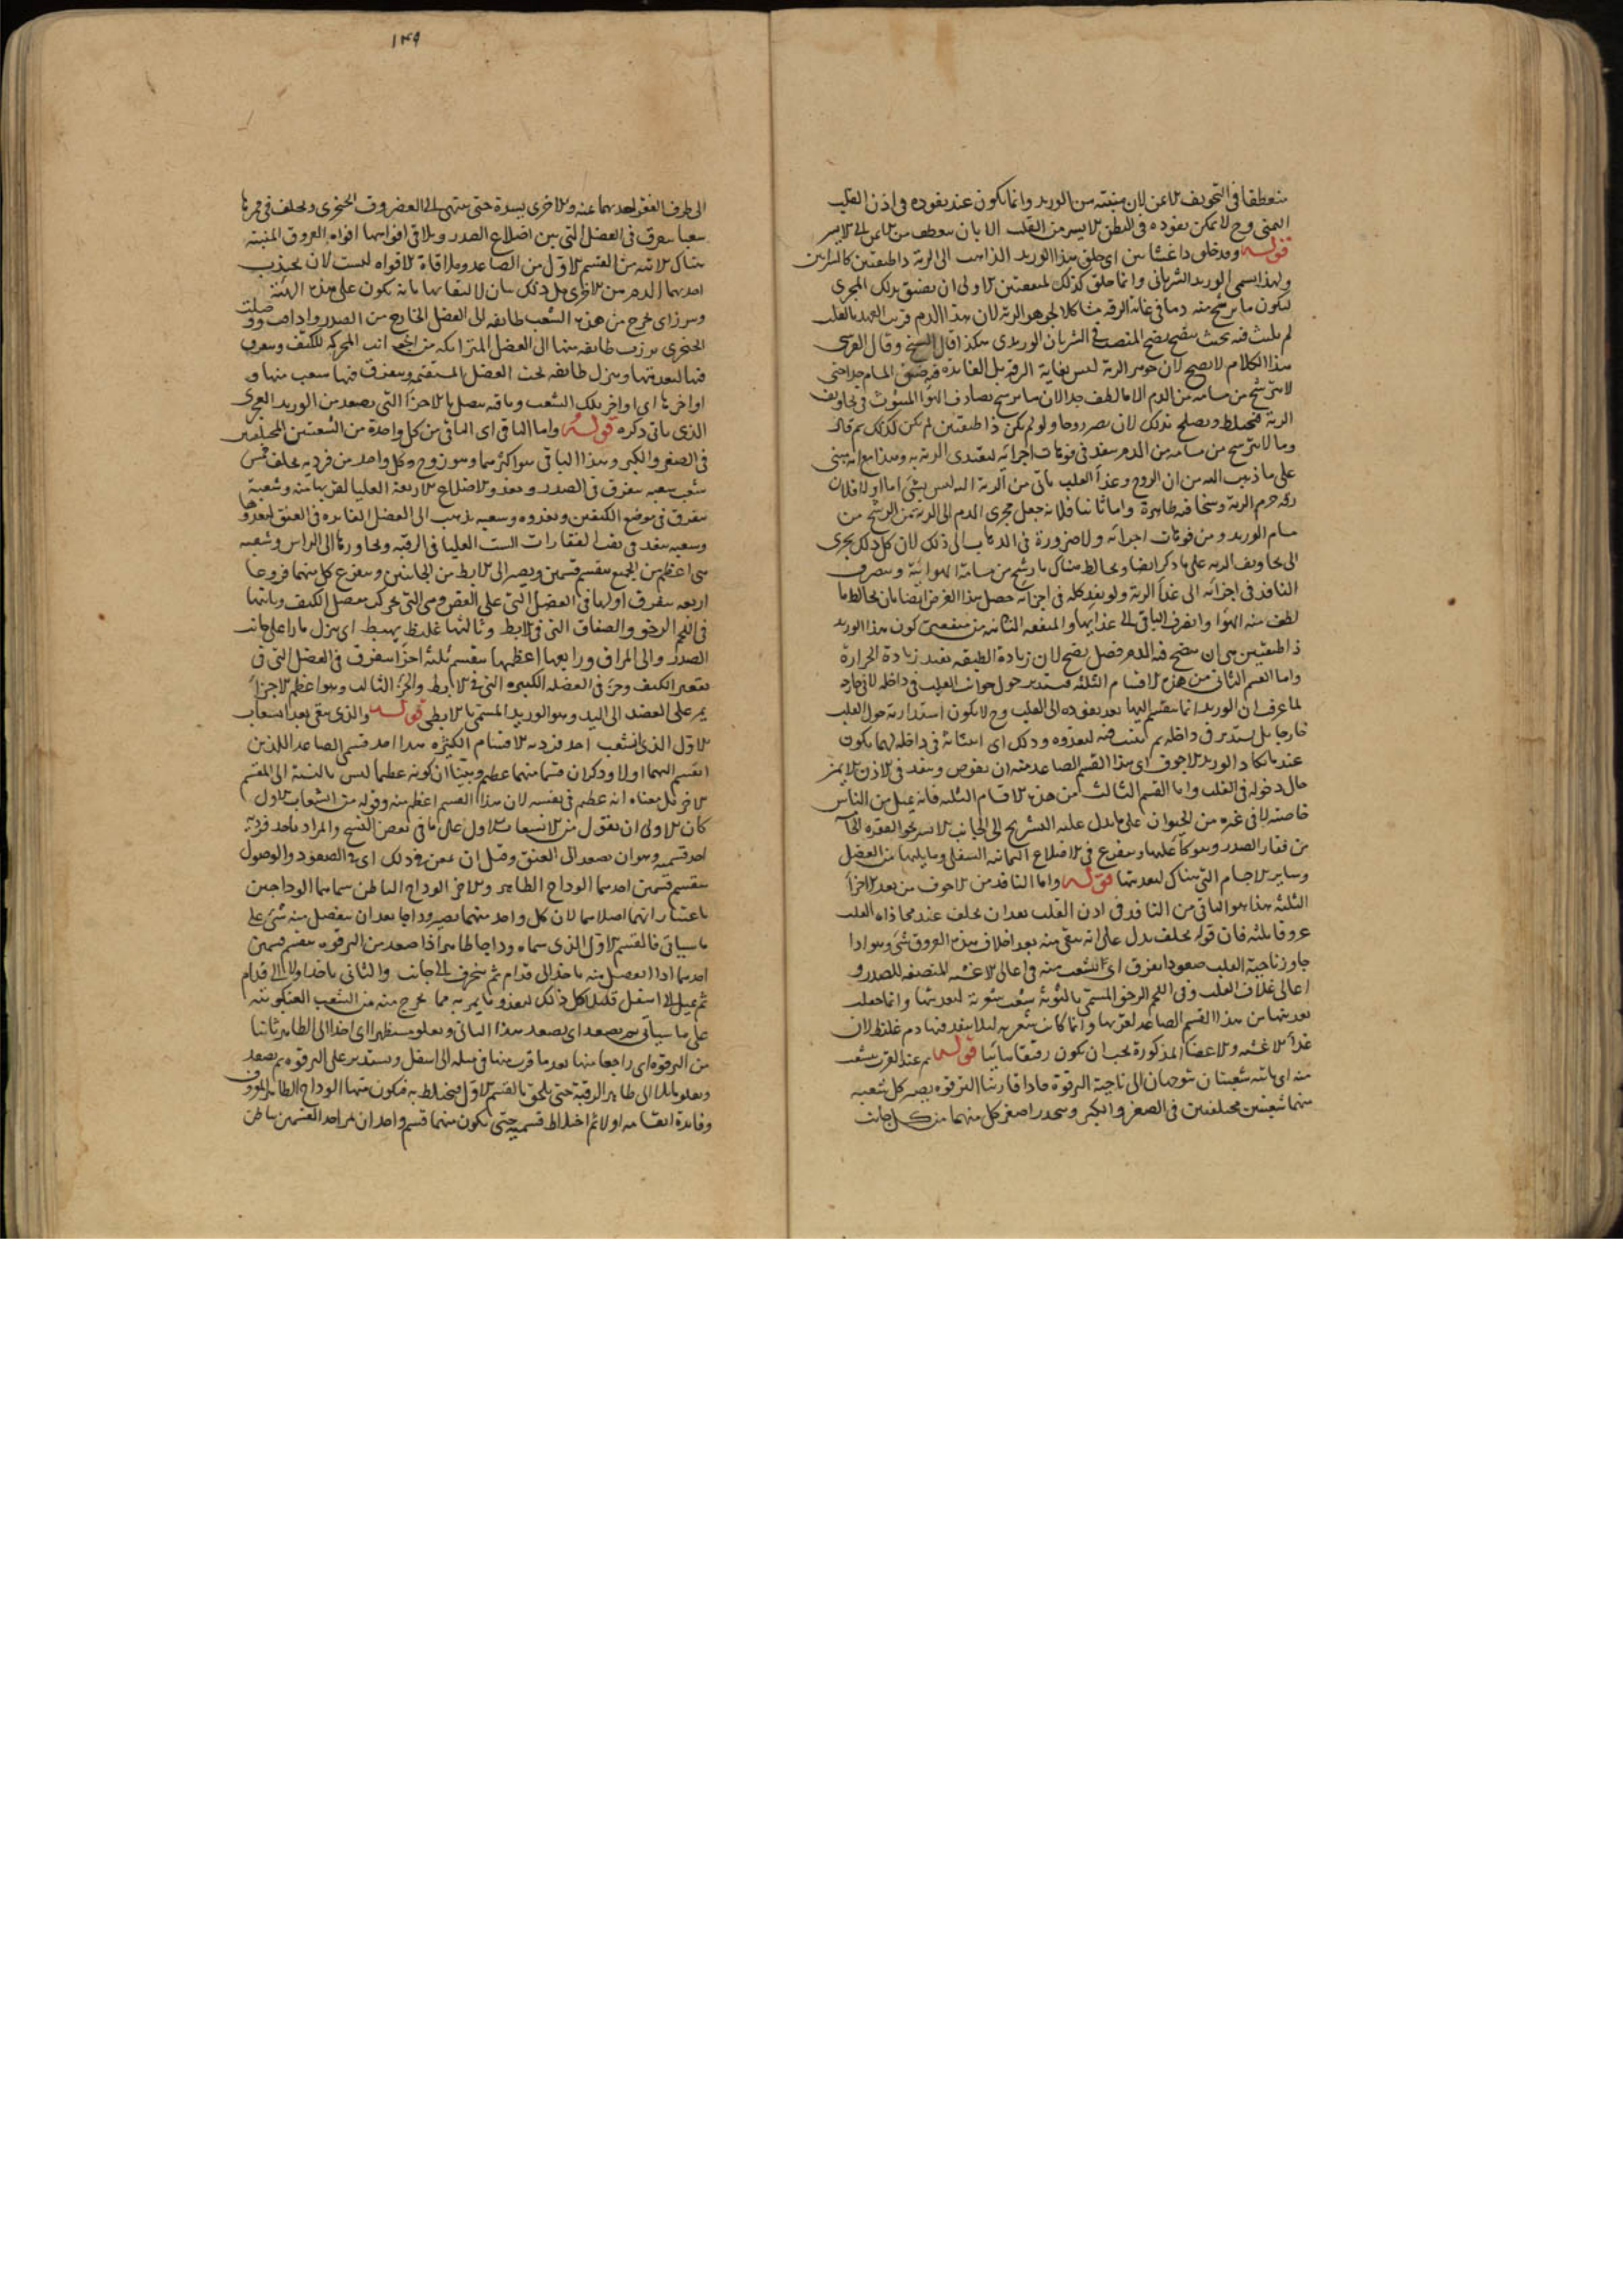 منعطفا فى التجويف الايمن لان منبته من الوريد وانما يكون عند نفوذه فى اذن القلب
اليمنى وح لا يمكن نفوذه فى البطن الايسر من القلب الا بان ينعطف من الايمن الى الايسر
قوله وقد خلق ذا غشاين اى خلق هذا الوريد الذاهب الى الرية ذا طبقتين كالشرايين
ولهذا يسمى الوريد الشريانى وانما خلق كذلك لمنفعتين الاولى ان يضيق بذلك المجرى
ليكون ما يرشح منه دما فى غاية الرقة مشاكلا لجوهر الرية لان هذا الدم قريب العهد بالقلب
لم يلبث فيه بحيث ينضج نضج المنصب فى الشريان الوريدى هكذا قال الشيخ وقال القرشى
هذا الكلام لا يصح لان جوهر الرية ليس بغاية الرقة بل الفايدة فيه ضيق المسام جدا حتى
لا يترشح من مسامه من الدم الا ما لطف جدا لان ما يرشح يصادف الهوا المبثوث فى تجاويف
الرية فيختلط ويصلح بذلك لان يصير روحا ولو لم يكن ذا طبقتين لم يكن كذلك ثم قال
وما لا يترشح من مسامه من الدم ينفذ فى فوهات اجزائه ليغتذى الرية به وهذا مع انه مبنى
على ما ذهب اليه من ان الروح وغذا القلب ياتى من الرية اليه ليس بشى اما اولا فلان
رقة جرم الرية وسخافته ظاهرة واما ثانيا فلانه جعل مجرى الدم الى الرية من الرشح من
مسام الوريد ومن فوهات اجزائه ولا ضرورة فى الذهاب الى ذلك لان كل ذلك يجرى
الى تجاويف الرية على ما ذكر ايضا ويخالط هناك ما رشح من مسامه الهوائية وينصرف
النافذ فى اجزائه الى غذا الرية ولو نفذ كله فى اجزائه حصل هذا الغرض ايضا بان يخالط ما
لطف منه الهوا وانصرف الباقى الى غذايها والمنفعة الثانية من منفعتى كون هذا الوريد
ذا طبقتين هى ان ينضج فيه الدم فضل نضج لان زيادة الطبقة تفيد زيادة الحرارة
واما القسم الثانى من هذه الاقسام الثلثة فيستدير حول جوانب القلب فى داخله لا فى خارجه
لما عرف ان الوريد انما ينقسم اليها بعد نفوذه الى القلب وح لا يكون استدارته حول القلب
خارجا بل يستدير فى داخله ثم ينبث فيه ليغذوه وذلك اى انبثاثه فى داخله انما يكون
عند ما كاد الوريد الاجوف اى هذا القسم الصاعد منه ان يغوص وينفذ فى الاذن الايمن
حال دخوله فى القلب واما القسم الثالث من هذه الاقسام الثلثة فانه يميل من الناس
خاصة لا فى غيره من الحيوان على ما يدل عليه التشريح الى الجانب الايسر نحو الفقرة الخامسة
من فقار الصدر ويتوكأ عليها ويتفرع فى الاضلاع الثمانية السفلى وما يليها من العضل
وساير الاجسام التى هناك ليغذيها قوله واما النافذ من الاجوف من بعد الاجزا
الثلثة هذا هو الباقى من النافذ فى اذن القلب بعد ان يخلف عند محاذاة القلب
عروقا ثلثة فان قوله يخلف يدل على انه يبقى منه بعد اخلاف هذه العروق شى وهو اذا
جاوز ناحية القلب صعودا تفرق اى انشعب منه فى اعالى الاغشية المنصفة للصدر و
اعالى غلاف القلب وفى اللحم الرخو المسمى بالتوثة شعب شعرية ليغذيها وانما جعلت
تغذيتها من هذا القسم الصاعد لقربها وانما كانت شعرية لئلا ينفذ فيها دم غليظ لان
غذا الاغشية والاعضا المذكورة يجب ان يكون رقيقا مائيا قوله ثم عند القرب يتشعب
منه اى ياتيه شعبتان يتوجهان الى ناحية الترقوة فاذا قاربتا الترقوة يصير كل شعبة
منهما شعبتين مختلفتين فى الصغر والكبر وينحدر اصغر كل منهما من كل جانب
١٤٩
الى طرف القص احديهما عنه والاخرى يسرة حتى ينتهى الى الغضروف الحنجرى ويخلف فى ممرها
شعبا يتفرق فى العضل التى بين اضلاع الصدر ويلاقى افواهها افواه العروق المنبثة
هناك الاتية من القسم الاول من الصاعد وملاقاة الافواه ليست لان يجذب
احديهما الدم من الاخرى بل ذلك بيان لالتقايها بانه يكون على هذه الهيئة
ويبرز اى يخرج من هذه الشعب طايفة الى العضل الخارج من الصدر واذا وصلت
الحنجرى برزت طايفة منها الى العضل المتراكمة المحركة للكتف ويتفرق
فيها ليغذيها وينزل طايفة تحت العضل المستقيمة ويتفرق فيها شعب منها و
اواخرها اى اواخر تلك الشعب وباقيه يتصل بالاجزا التى يصعد من الوريد العجزى
الذى ياتى ذكره قوله واما الباقى اى الباقى من كل واحدة من الشعبتين المختلفتين
فى الصغر والكبر وهذا الباقى هو اكثرهما وهو زوج وكل واحد من فرديه يخلف خمس
شعب شعبة يتفرق فى الصدر ويغذو الاضلاع الاربعة العليا لقربها منه وشعبة
يتفرق فى موضع الكتفين ويغذوه وشعبة يذهب الى العضل الغايرة فى العنق ليغذوها
وشعبة ينفذ فى ثقب الفقارات الست العليا فى الرقبة ويجاوزها الى الراس وشعبة
هى اعظم من الجميع ينقسم قسمين ويصير الى الابط من الجانبين ويتفرع كل منهما فروعا
اربعة يتفرق اولها فى العضل التى على القص وهى التى يحرك مفصل الكتف وثانيها
فى اللحم الرخو والصفاق التى فى الابط وثالثها غليظ يهبط اى ينزل مارا على جانب
الصدر والى المراق ورابعها اعظمها ينقسم ثلثة اجزا يتفرق فى العضل التى فى
تقعير الكتف وجز فى العضلة الكبيرة التى فى الابط والجز الثالث وهو اعظم الاجزا
يمر على العضد الى اليد وهو الوريد المسمى بالابطى قوله والذى يبقى بعد انشعاب
الاول الذى انشعب احد فرديه الاقسام الكثيرة هذا احد قسمى الصاعد اللذين
انقسم اليهما اولا وذكر ان قسما منهما عظيم وبينا ان كونه عظيما ليس بالنسبة الى القسم
الاخر بل معناه انه عظيم فى نفسه لان هذا القسم اعظم منه وقوله من انشعاب الاول
كان الاولى ان يقول من الانشعاب الاول على ما فى بعض النسخ والمراد باحد فرديه
احد قسميه وهو ان يصعد الى العنق وقبل ان يمعن فى ذلك اى فى الصعود والوصول
ينقسم قسمين احدهما الوداج الظاهر والاخر الوداج الباطن سماهما الوداجين
باعتبار انهما اصلاهما لان كل واحد منهما يصير وداجا بعد ان ينفصل منه شى على
ما سياتى فالقسم الاول الذى سماه وداجا ظاهرا اذا صعد من الترقوة ينقسم قسمين
احدهما اذا انفصل منه ياخذ الى قدام ثم ينحرف الى جانب والثانى ياخذ اولا الى قدام
ثم يميل الى اسفل قليلا كل ذلك ليغذو ما يمر به مما يخرج منه من الشعب العنكبوتية
على ما سياتى ثم يصعد اى يصعد هذا الثانى ويعلو مستظهرا اى اخذا الى الظاهر ثانيا
من الترقوة اى راجعا منها بعد ما قرب منها فى ميله الى اسفل ويستدير على الترقوة ثم يصعد
ويعلو مايلا الى ظاهر الرقبة حتى يلحق بالقسم الاول فيختلط به فيكون منهما الوداج الظاهر المعروف
وفايدة انقسامه اولا ثم اختلاط قسميه حتى يكون منهما قسم واحد ان مر احد القسمين